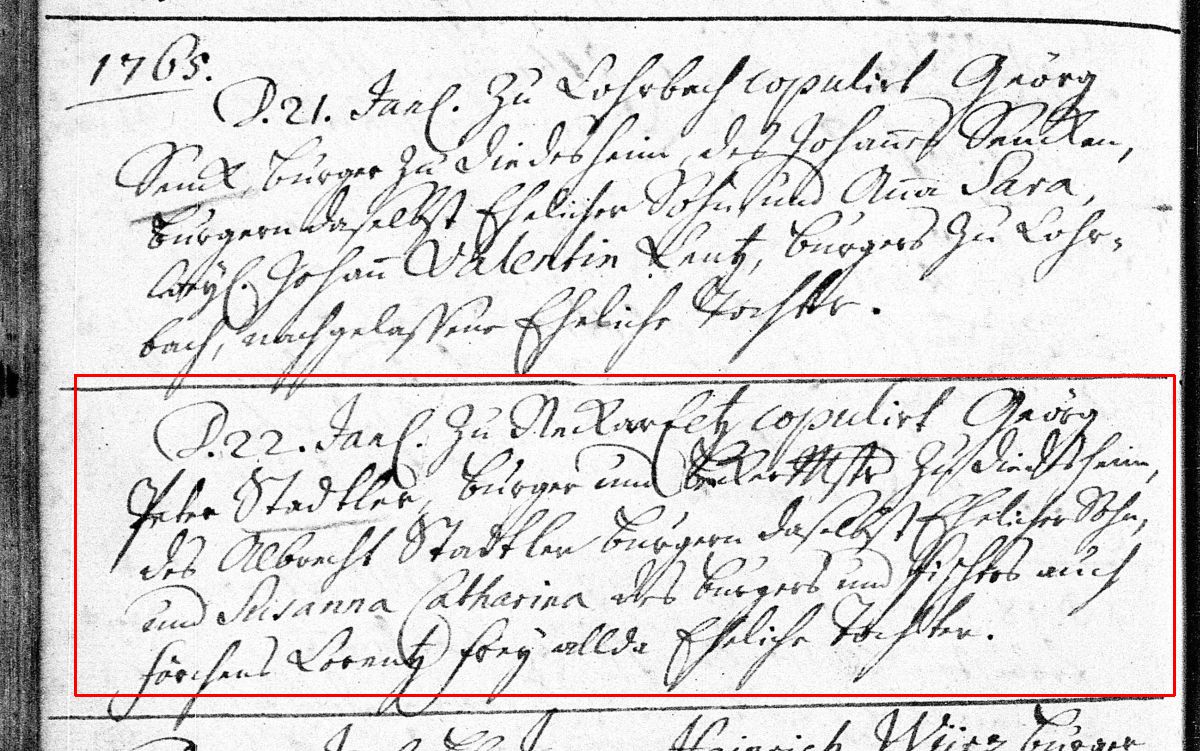 1765.
D. 21. Jan. Zu Lohrbach copulirt Georg
Senck, burger zu Diedesheim, des Johannes Sencken,
burgern daselbst Ehelicher Sohn, und Anna Sara,
weyl. Johann Valentin Lentz, burgers zu Lohr-
bach, nachgelassene Eheliche Tochter.
D. 22. Jan. Zu Neckareltz copulirt Georg
Peter Stadtler, burger und Zu Diedesheim,
des Albrecht Stadtler burgern daselbst Ehelicher Sohn,
und Susanna Catharina des burgers und fischers auch
Lorentz Frey allda Eheliche Tochter.
Heinrich burger